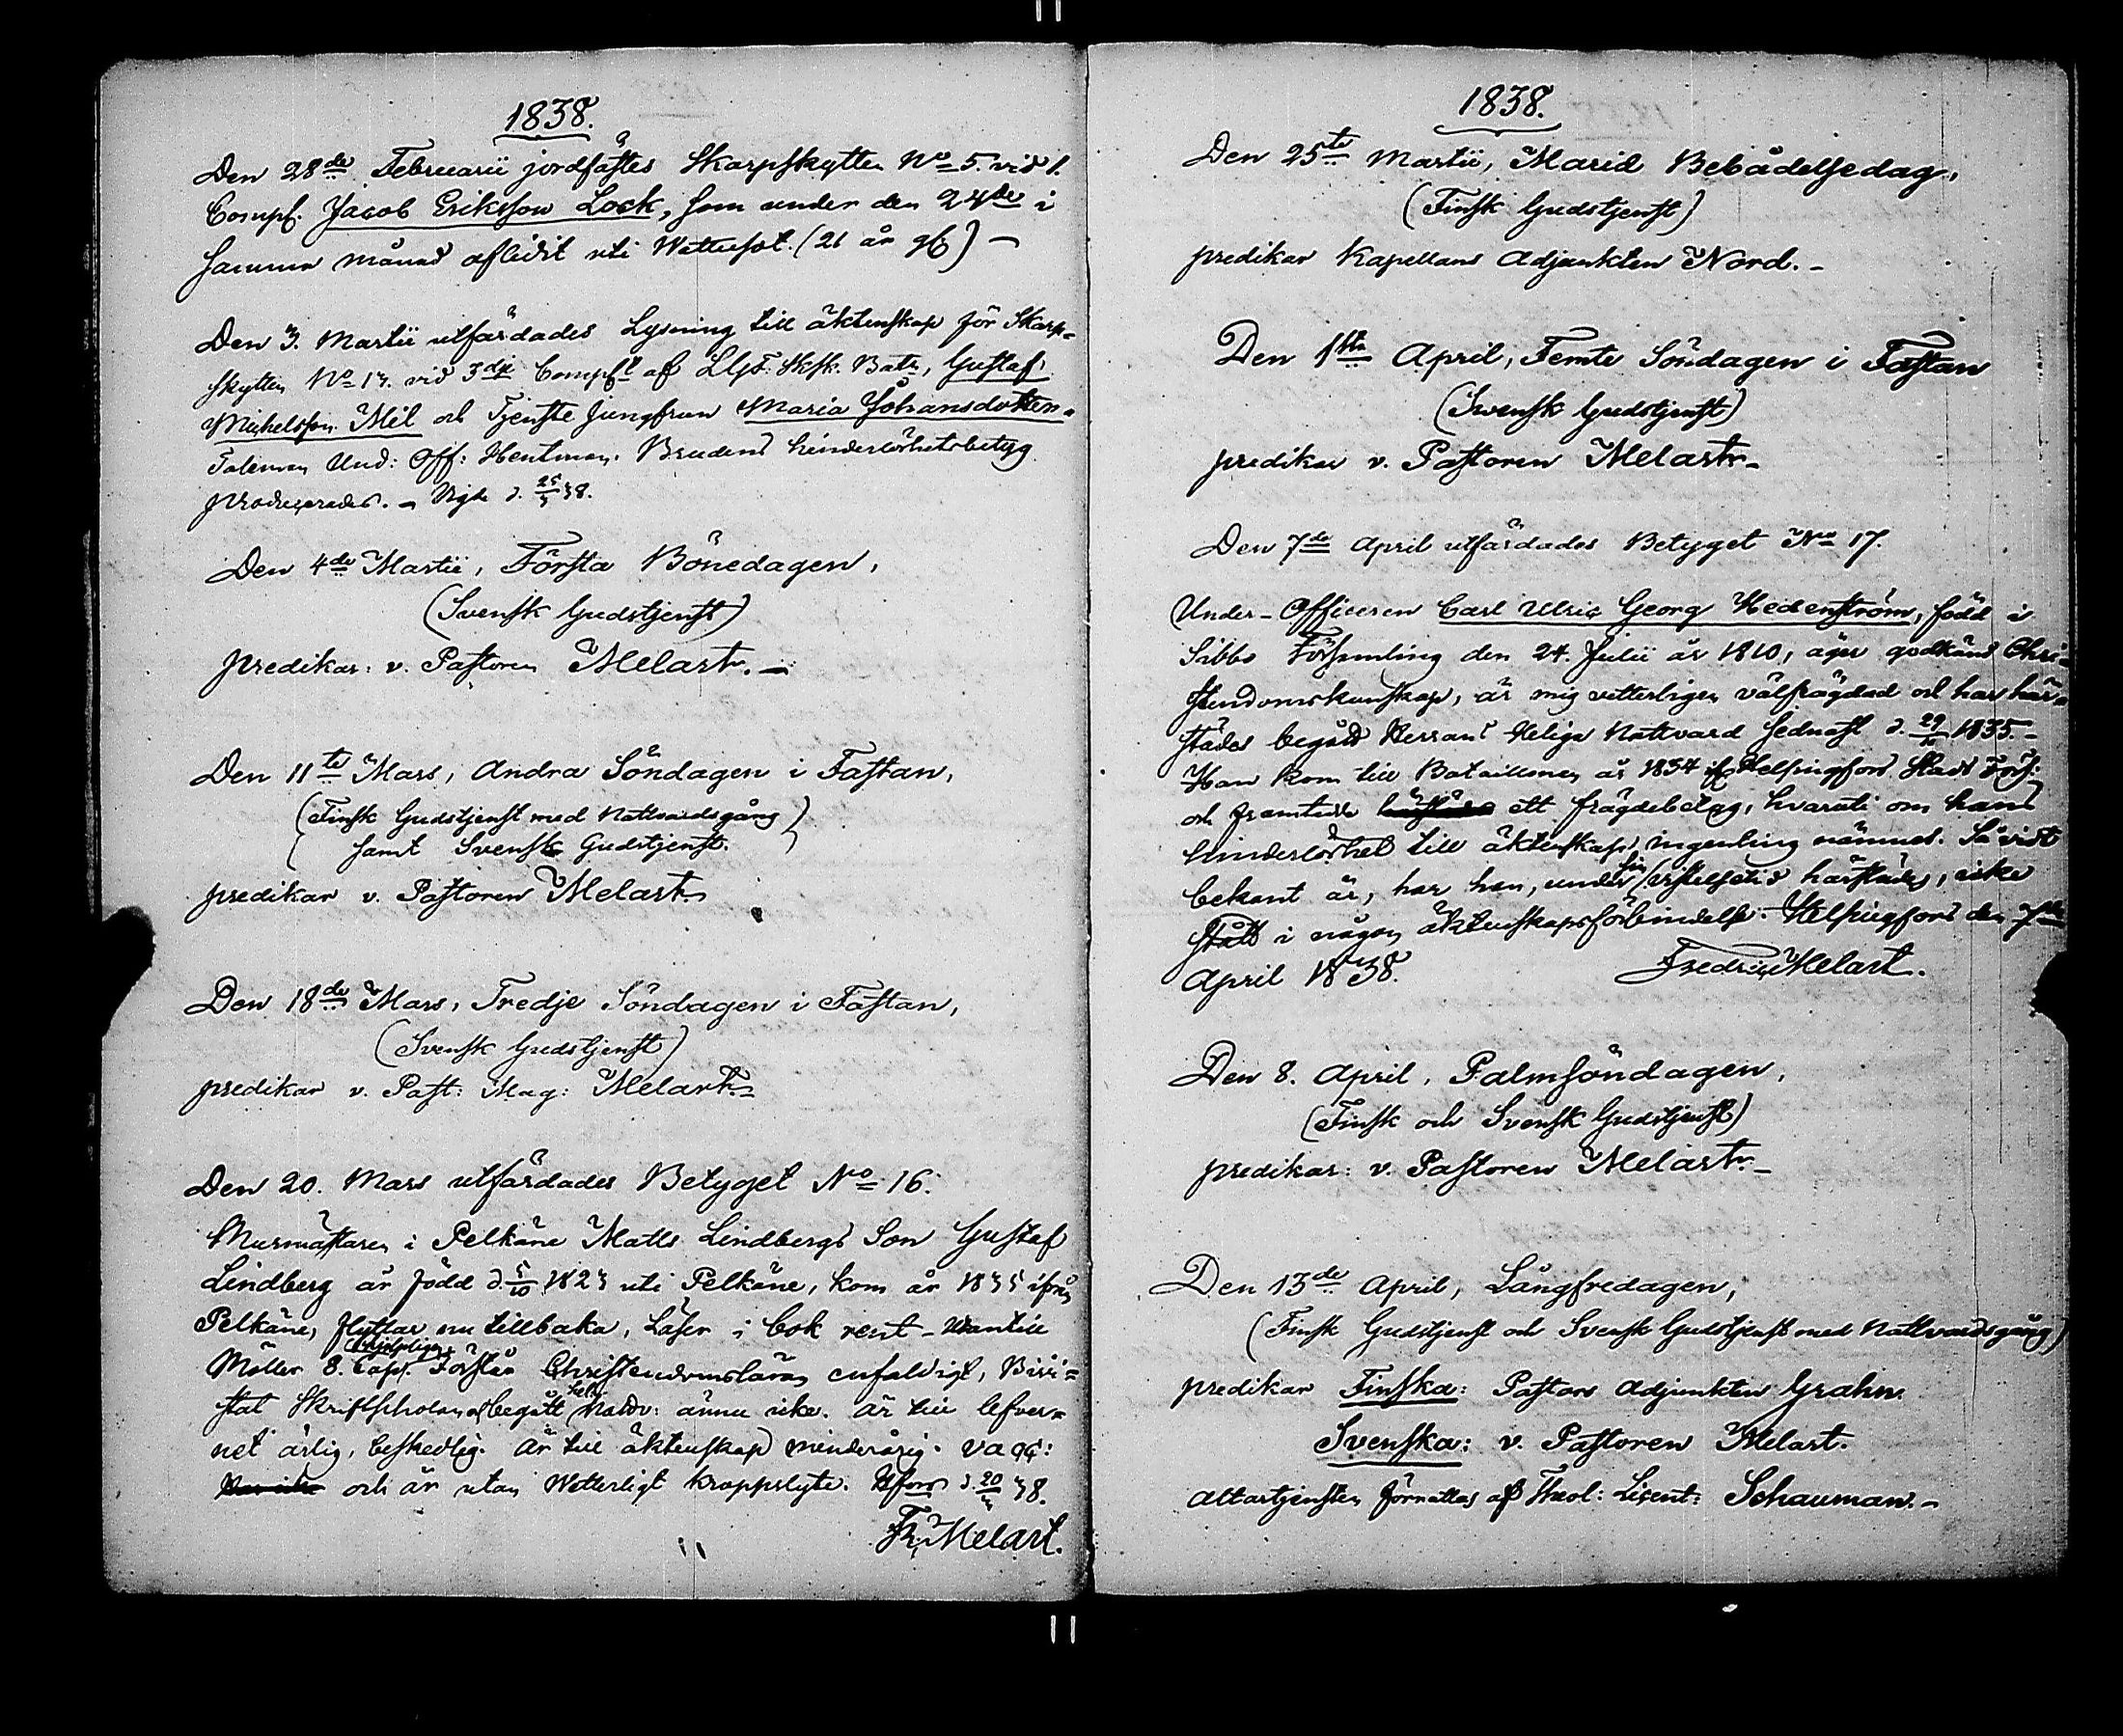 1838.
Den 28de Februarii jordfästes Skarpskytten No 5. vid 1.
Comp. Jacob Eriksson Lock, som under den 24de i
samma månad aflidit uti Wattusot. (21 år g)
Den 3. Martii utfärdades Lysning till äktenskap för Skarp-
skytten No 13. vid 3dje Comp af Lifs: Skfk. Batn, Gustaf
Michelsson Mil och Tjenste jungfrun Maria Johansdotter.
Taleman Und: Off: Hentman. Brudens hinderlöshetsbetyg
producerades. - Vigde d. 25/3 38.
Den 4de Martii, Första Bönedagen,
(Svensk Gudstjenst)
predikar: v. Pastoren Melart. -
Den 11te Mars, Andra Söndagen i Fastan,
(Finsk Gudstjenst med Nattvardsgång)
samt Svensk Gudstjenst.
predikar v. Pastoren Melart
Den 18de Mars, Tredje Söndagen i Fastan,
(Svensk Gudstjenst)
predikar v. Past: Mag: Melart. -
Den 20. Mars utfärdades Betyget No 16.
Murmästaren i Pelkäne Matts Lindbergs Son Gustaf
Lindberg är född d. 5/10 1823 uti Pelkäne, kom år 1835 ifrån
Pelkäne, flyttar nu tillbaka, Läser i bok rent - Utantill
Möller 8. Cap. hjelpligen Förstår Christendomsläran enfaldigt, Bivi-
stat Skriftscholan, begått hel. Nattv: ännu icke. Är till lefver-
net ärlig, beskedlig. Är till äktenskap minderårig. vacc:
och är utan Wetterligt kroppslyte. Hfors d. 20/3 38.
Fr. Melart.
1838.
Den 25te Martii, Mariæ Bebådelsedag,
(Finsk Gudstjenst)
predikar Kapellans Adjunkten Nord. -
Den 1sta April, Femte Söndagen i Fastan
(Svensk Gudstjenst)
predikar v. Pastoren Melart -
Den 7de April utfärdades Betyget No 17.
Under-Officeren Carl Ulric Georg Hedenström, född i
Sibbo Församling den 24. Julii år 1810, äger godkänd Chri-
stendomskunskap, är mig vetterligen välfrägdad och har här-
städes begått Herrans Heliga Nattvard sednast d. 29/ 1835. -
Han kom till Bataillonen år 1834 if Helsingfors Stads Förs:
och framtedde härstädes ett frägdebetyg, hvaruti om hans
hinderlöshet till äktenskap ingenting nämnes. Så vidt
bekant är, har han, under sin vistelsetid härstädes, icke
stått i någon äktenskapsförbindelse. Helsingfors den 7de
April 1838. Fredric Melart.
Den 8. April, Palmsöndagen,
(Finsk och Svensk Gudstjenst)
predikar: v. Pastoren Melart. -
Den 13de April, Långfredagen,
(Finsk Gudstjenst och Svensk Gudstjenst med Nattvardsgång)
predikar Finska: Pastors Adjunkten Grahn.
Svenska: v. Pastoren Melart.
Altartjensten förrättas af Theol: Licent: Schauman. -